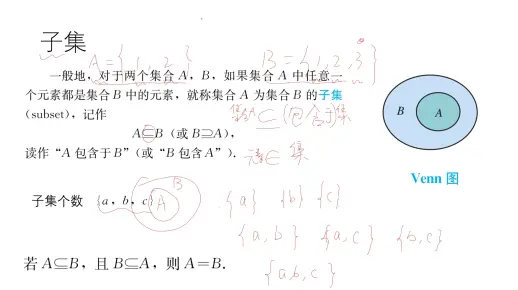 子集
A={1,2} B={1,2,3}
一般地，对于两个集合 A，B，如果集合 A 中任意一
个元素都是集合 B 中的元素，就称集合 A 为集合 B 的子集
(subset)，记作
集合⊆(包含于)集
A⊆B（或 B⊇A），
读作“A 包含于 B”（或“B 包含 A”）．
∈ 集
B A
Venn 图
子集个数 {a，b，c}
B
A
{a} {b} {c}
{a,b} {a,c} {b,c}
{a,b,c}
若 A⊆B，且 B⊆A，则 A=B.